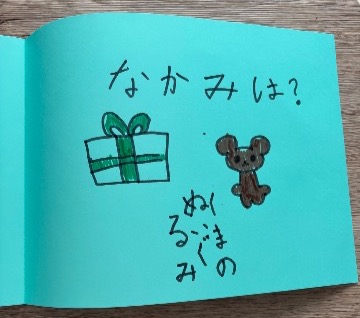 なかみは?
くまの
ぬいぐ
るみ